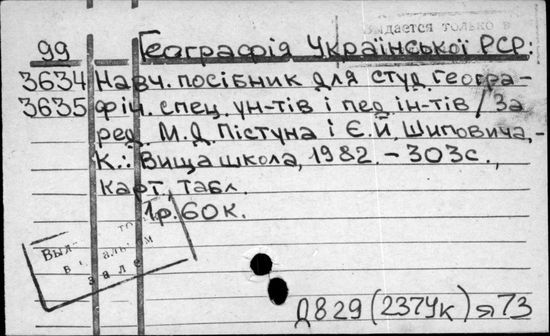 Выдается только в
99 Географія Української РСР:
3634 Навч. посібник для студ. геогра-
3635 фіч. спец. ун-тів і пед. ін-тів / За
ред. М.Д. Пістуна і Є.Й. Шиповича,-
К.: Вища школа, 1982. - 303с.,
карт., табл.
1р. 60к.
зале
Д829(237Ук)я73